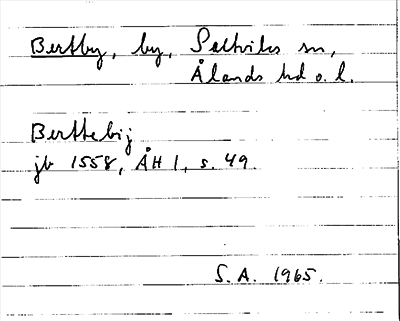 Bertby, by, Saltviks sn,
Ålands hd o. l.
Berttebij
jb 1558, ÅH 1, s. 49.
S. A. 1965.